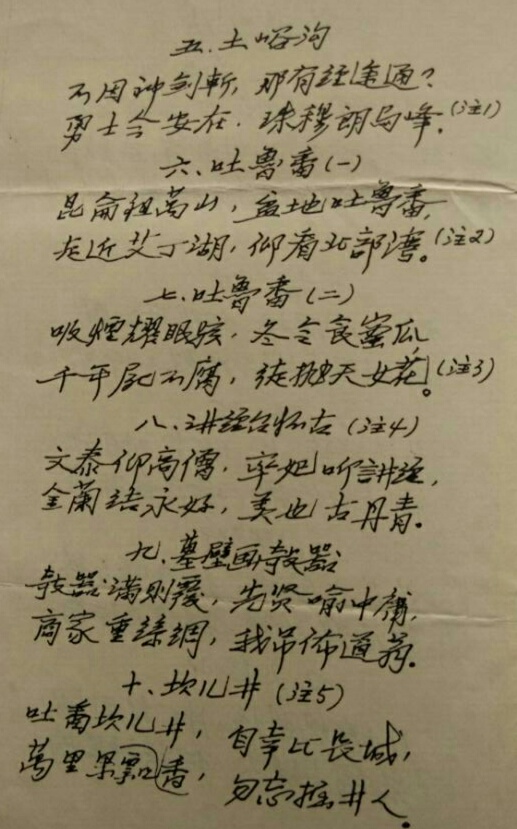 五、土峪沟
不因神剑斩，那有经途通？
勇士今安在，珠穆朗玛峰。(注1)
六、吐鲁番(一)
昆侖祖萬山，盆地吐鲁番，
走近艾丁湖，仰看北部湾。(注2)
七、吐鲁番(二)
吸煙耀眼 ，冬令食蜜瓜
千年尸不腐，徒 天女花。(注3)
八、讲经台怀古(注4)
文泰仰高僧，率妃听讲经，
金蘭结永好，美也古丹青。
九、墓壁画欹器
欹器满则覆，先贤喻中庸，
商家重 ，我吊佈道 。
十、坎儿井(注5)
吐番坎儿井，自幸比長城，
萬里果飄香，勿忘掘井人。